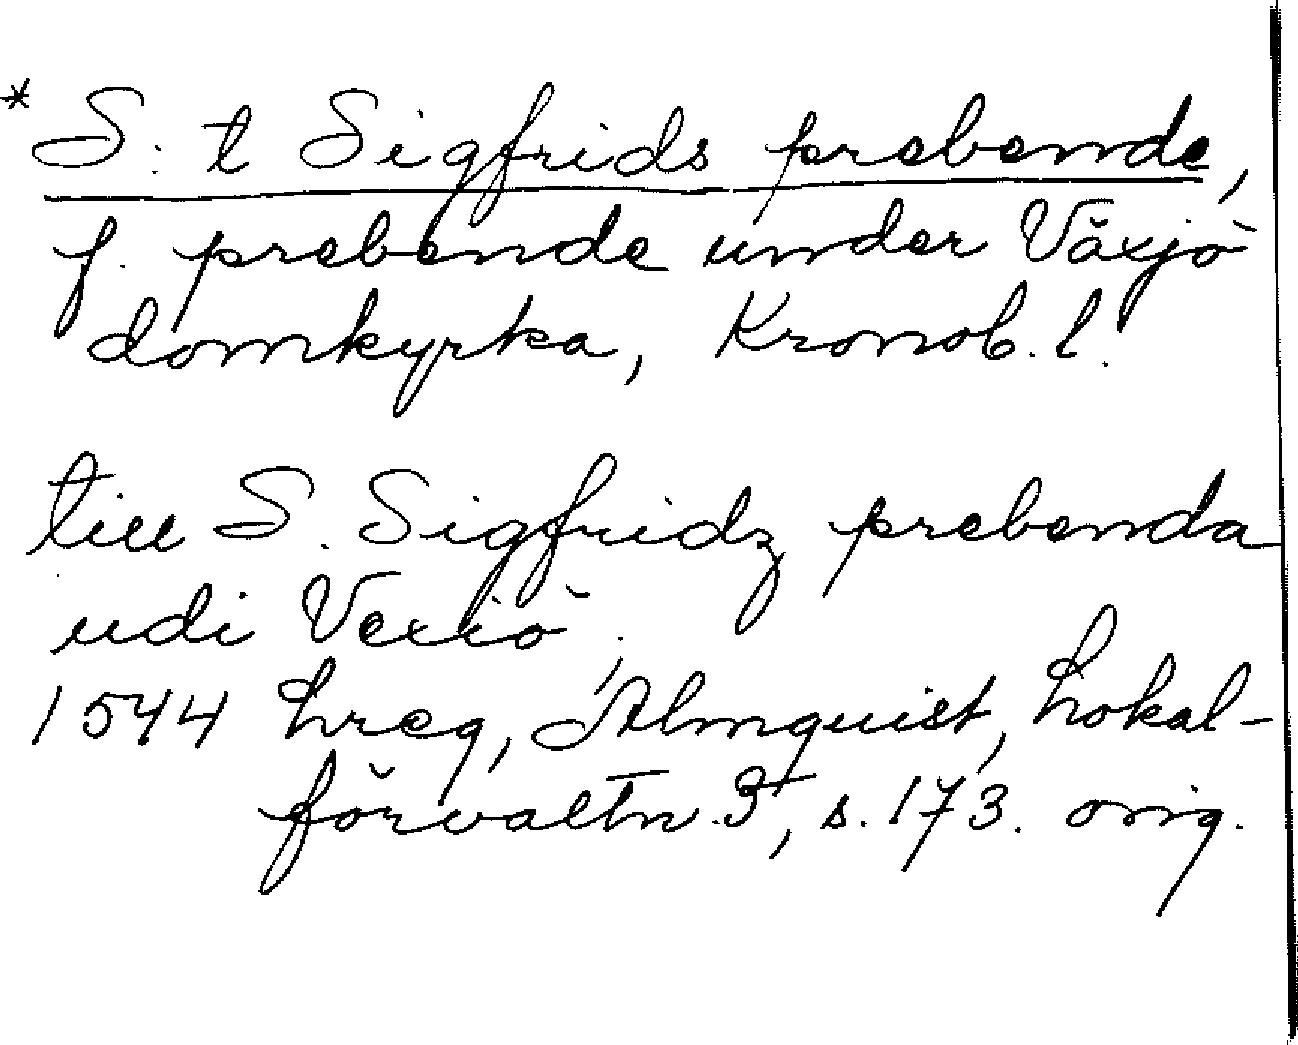 * S:t Sigfrids prebende,
f. prebende under Växjö
domkyrka, Kronob. l.
till S. Sigfridz prebenda
udi Vexiö.
1544 hreg, Almquist, Lokal-
förvaltn. 3, s. 173. orig.